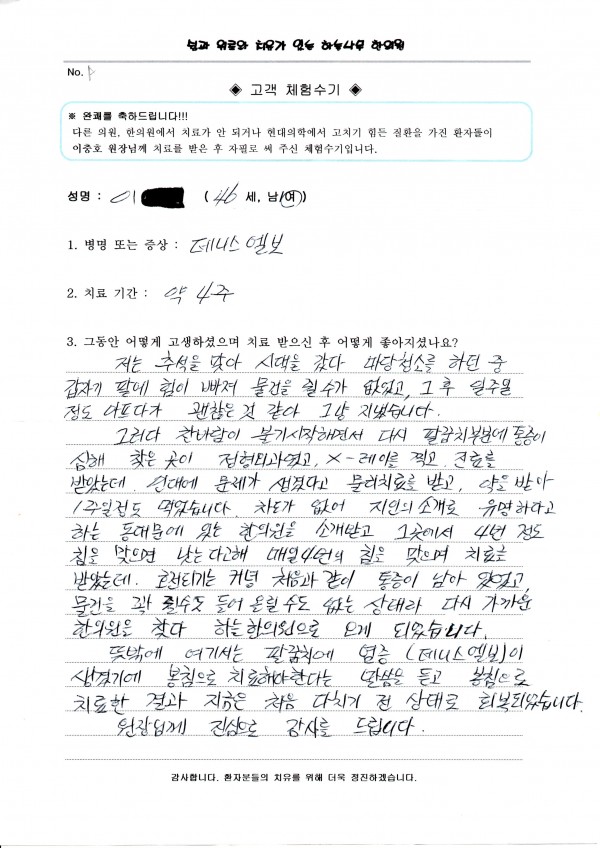 No.
◈ 고객 체험수기 ◈
※ 완쾌를 축하드립니다!!!
다른 의원, 한의원에서 치료가 안 되거나 현대의학에서 고치기 힘든 질환을 가진 환자들이
이충호 원장님께 치료를 받은 후 자필로 써 주신 체험수기입니다.
성명 : 이 ( 46 세, 남/여 )
1. 병명 또는 증상 : 테니스엘보
2. 치료 기간 : 약 4주
3. 그동안 어떻게 고생하셨으며 치료 받으신 후 어떻게 좋아지셨나요?
저는 추석을 맞아 시댁을 갔다 마당청소를 하던 중
갑자기 팔에 힘이 빠져 물건을 쥘수가 없었고, 그 후 일주일
정도 아프다가 괜찮은 것 같아 그냥 지냈습니다.
그러다 찬바람이 불기시작하면서 다시 팔꿈치부분에 통증이
심해 찾은 곳이 정형외과였고, X-레이를 찍고 진료를
받았는데. 인대에 문제가 생겼다고 물리치료를 받고, 약을 받아
1주일정도 먹었습니다. 차도가 없어 지인의 소개로 유명하다고
하는 동대문에 있는 한의원을 소개받고 그곳에서 4번 정도
침을 맞으면 낫는다고해 매일 4번의 침을 맞으며 치료를
받았는데. 호전되기는 커녕 처음과 같이 통증이 남아 있었고
물건을 꽉 쥘수도 들어 올릴 수도 없는 상태라 다시 가까운
한의원을 찾다 하늘한의원으로 오게 되었습니다.
뜻밖에 여기서는 팔꿈치에 염증 (테니스엘보)이
생겼기에 봉침으로 치료해야한다는 말씀을 듣고 봉침으로
치료한 결과 지금은 처음 다치기 전 상태로 회복되었습니다.
원장님께 진심으로 감사를 드립니다.
감사합니다. 환자분들의 치유를 위해 더욱 정진하겠습니다.